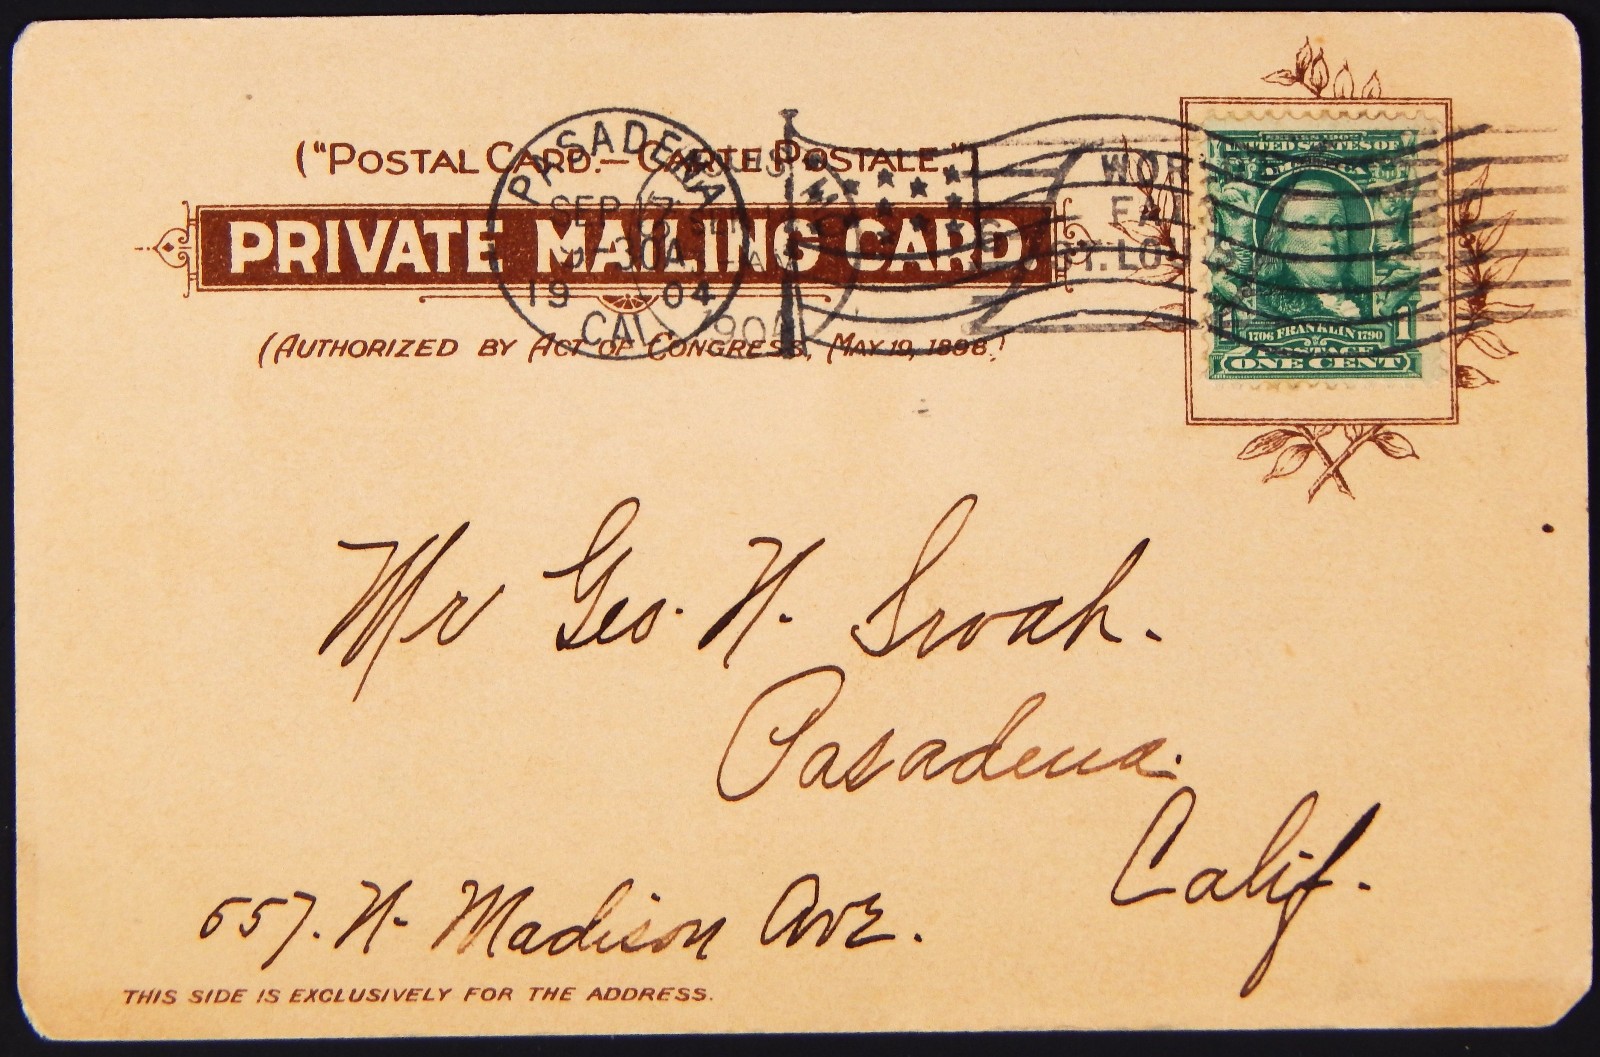 ("POSTAL CARD. — CARTE POSTALE.")
PRIVATE MAILING CARD.
(AUTHORIZED BY ACT OF CONGRESS, MAY 19, 1898.)
PASADENA
SEP 17
30A
19 04
CAL.
1904
WOR
FAI
ST. LOU
UNITED STATES OF
AMERICA
1706 FRANKLIN 1790
POSTAGE
1 1
ONE CENT
Mr Geo. H.
Pasadena.
Calif.
557. N. Madison Ave.
THIS SIDE IS EXCLUSIVELY FOR THE ADDRESS.